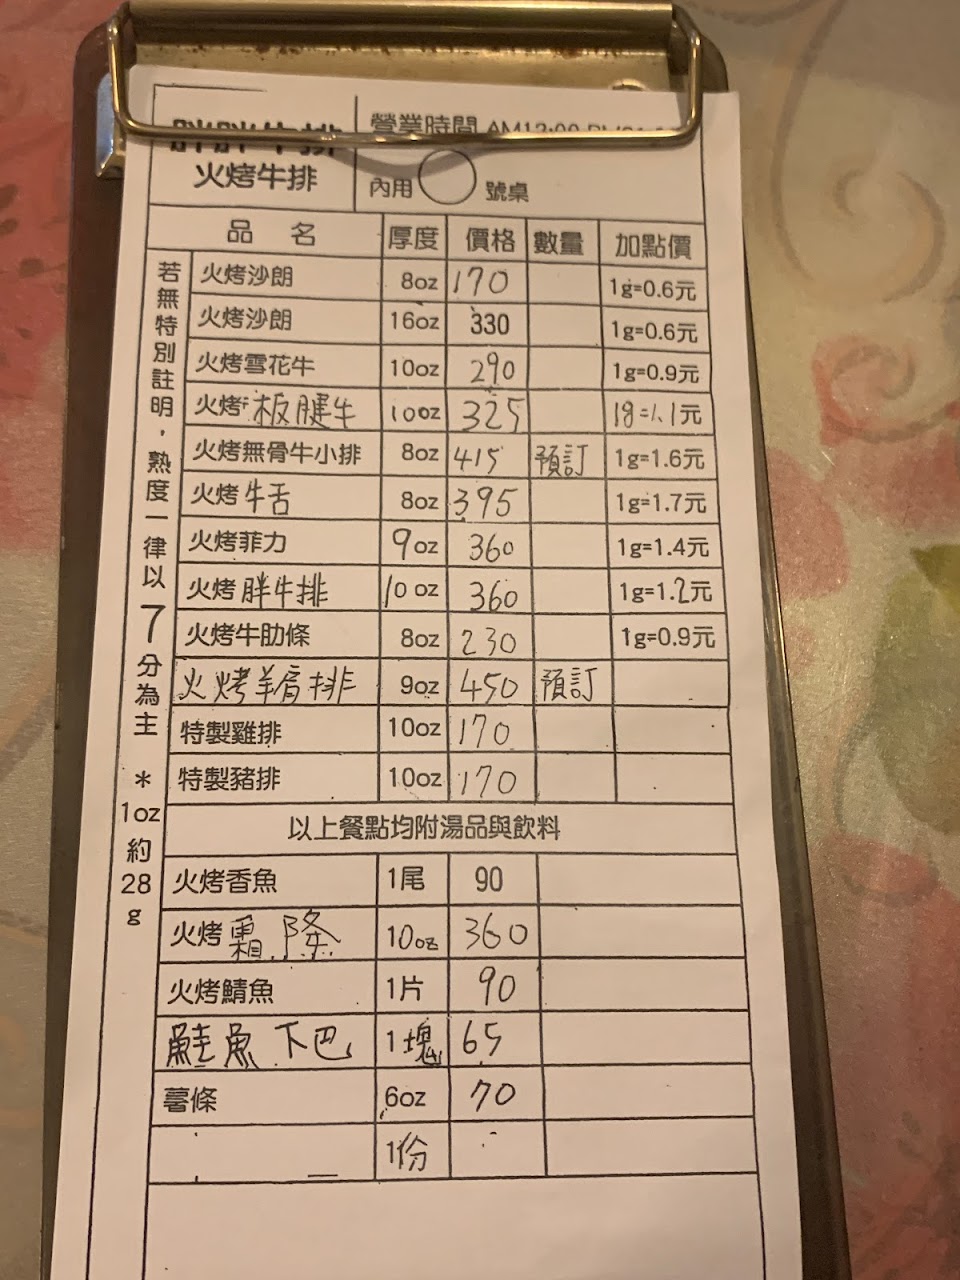 營業時間 AM12:00
火烤牛排
內用 號桌
品名 厚度 價格 數量 加點價
火烤沙朗 8oz 170 1g=0.6元
火烤沙朗 16oz 330 1g=0.6元
火烤雪花牛 10oz 290 1g=0.9元
火烤板腱牛 10oz 325 1g=1.1元
火烤無骨牛小排 8oz 415 預訂 1g=1.6元
火烤牛舌 8oz 395 1g=1.7元
火烤菲力 9oz 360 1g=1.4元
火烤胖牛排 10oz 360 1g=1.2元
火烤牛肋條 8oz 230 1g=0.9元
火烤羊肩排 9oz 450 預訂
特製雞排 10oz 170
特製豬排 10oz 170
以上餐點均附湯品與飲料
火烤香魚 1尾 90
火烤霜降 10oz 360
火烤鯖魚 1片 90
鮭魚下巴 1塊 65
薯條 6oz 70
1份
若無特別註明，熟度一律以7分為主 *1oz約28g